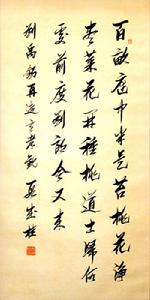 百畝庭中半是苔桃花淨
盡菜花開種桃道士歸何
處前度劉郎今又來
劉禹錫再遊玄都觀